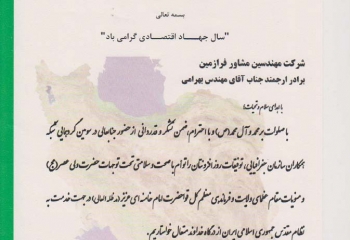 بسمه تعالی
"سال جهاد اقتصادی گرامی باد"
شرکت مهندسین مشاور فرازمین
برادر ارجمند جناب آقای مهندس بهرامی
با اهدای سلام و تحیات؛
با صلوات بر محمد و آل محمد (ص) و با احترام، ضمن تشکر و قدردانی از حضور جنابعالی در سومین گردهمایی شبکه
همکاران سازمان جغرافیایی، توفیقات روز افزونتان را توأم با صحت و سلامتی تحت توجهات حضرت ولی عصر (عج)
و منویات مقام عظمای ولایت و فرماندهی معظم کل قوا حضرت امام خامنه ای عزیز (مدظله العالی) در جهت خدمت به
نظام مقدس جمهوری اسلامی ایران از درگاه خداوند متعال خواستاریم.